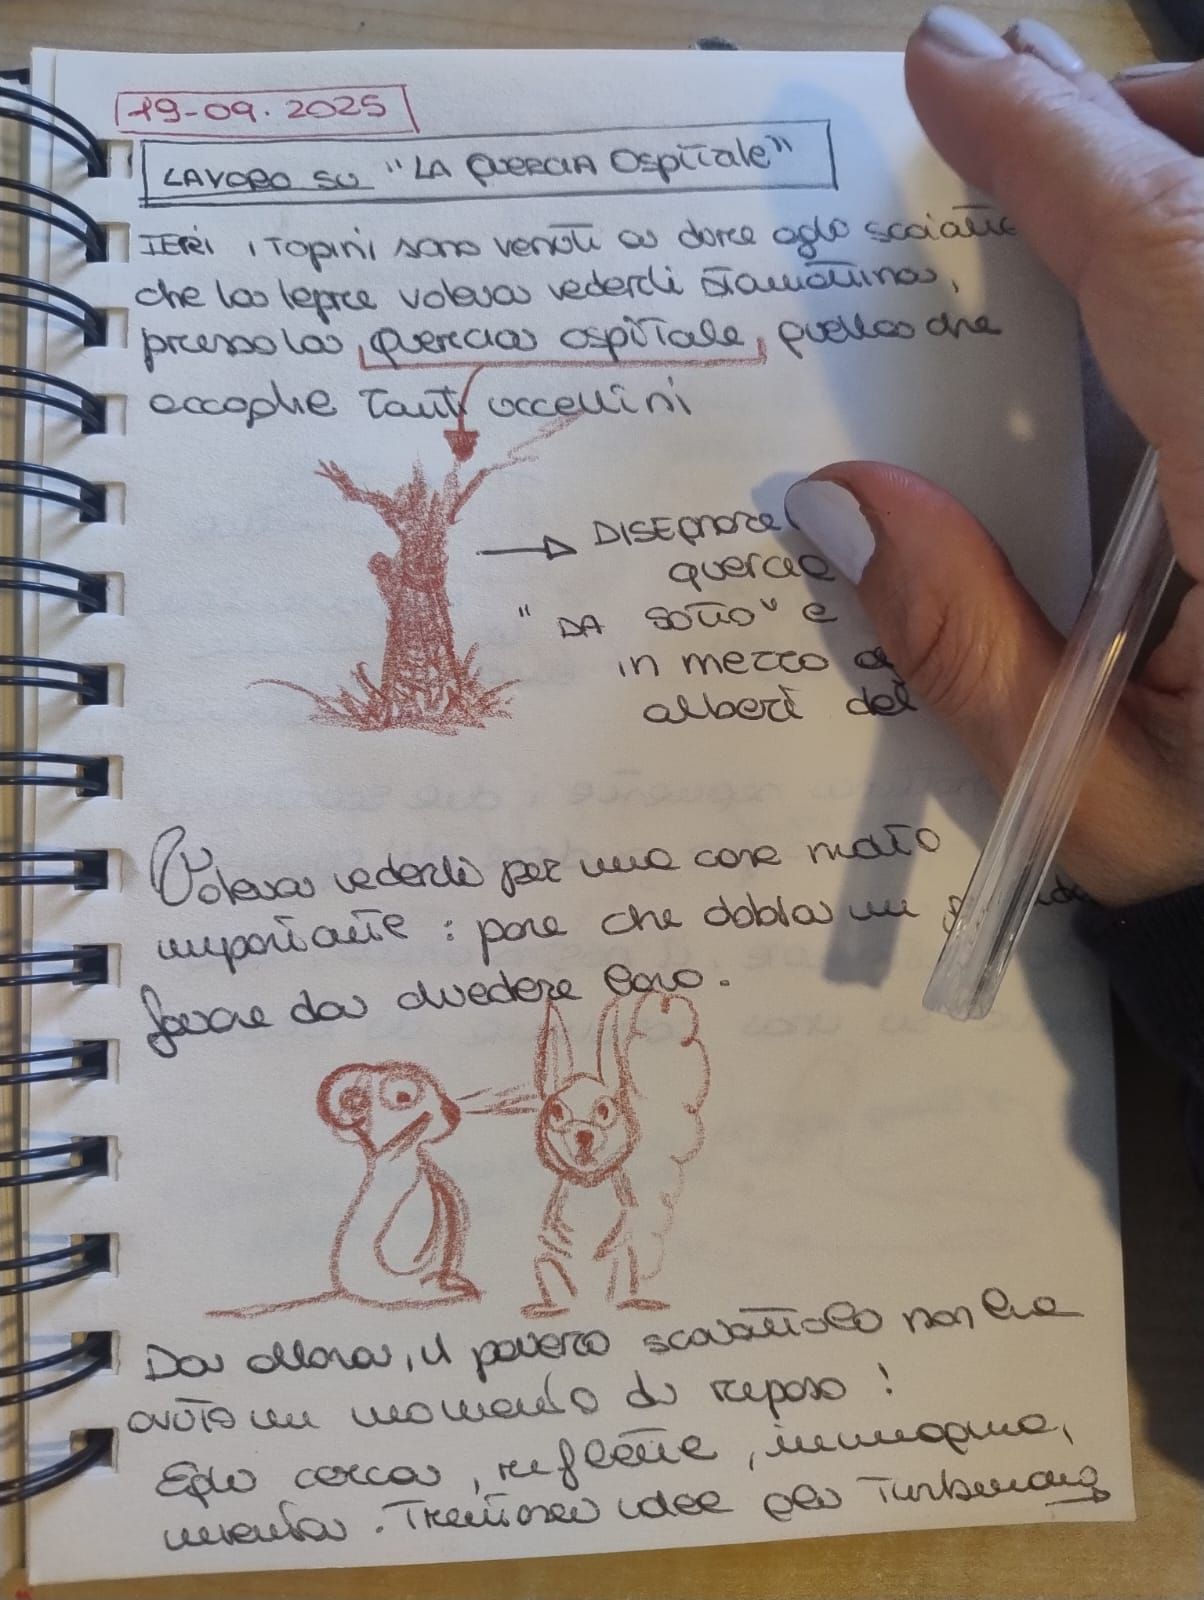 19-09.2025
LAVORO SU "LA QUERCIA OSPITALE"
IERI i Topini sono venuti a dire aglo scoiattolo
che la lepre voleva vederli stamattina,
presso la quercia ospitale, quella che
accoglie tanti uccellini
DISEGNARE
querce
"DA SOTTO" e
in mezzo
alberi del
Voleva vederli per una cosa molto
importante: pare che debba un
favore da chiedere loro.
Da allora, il povero scoiattolo non ha
avuto un momento di riposo!
Egli cerca, riflette, immagina,
inventa. Trentasei idee gli Turbinano